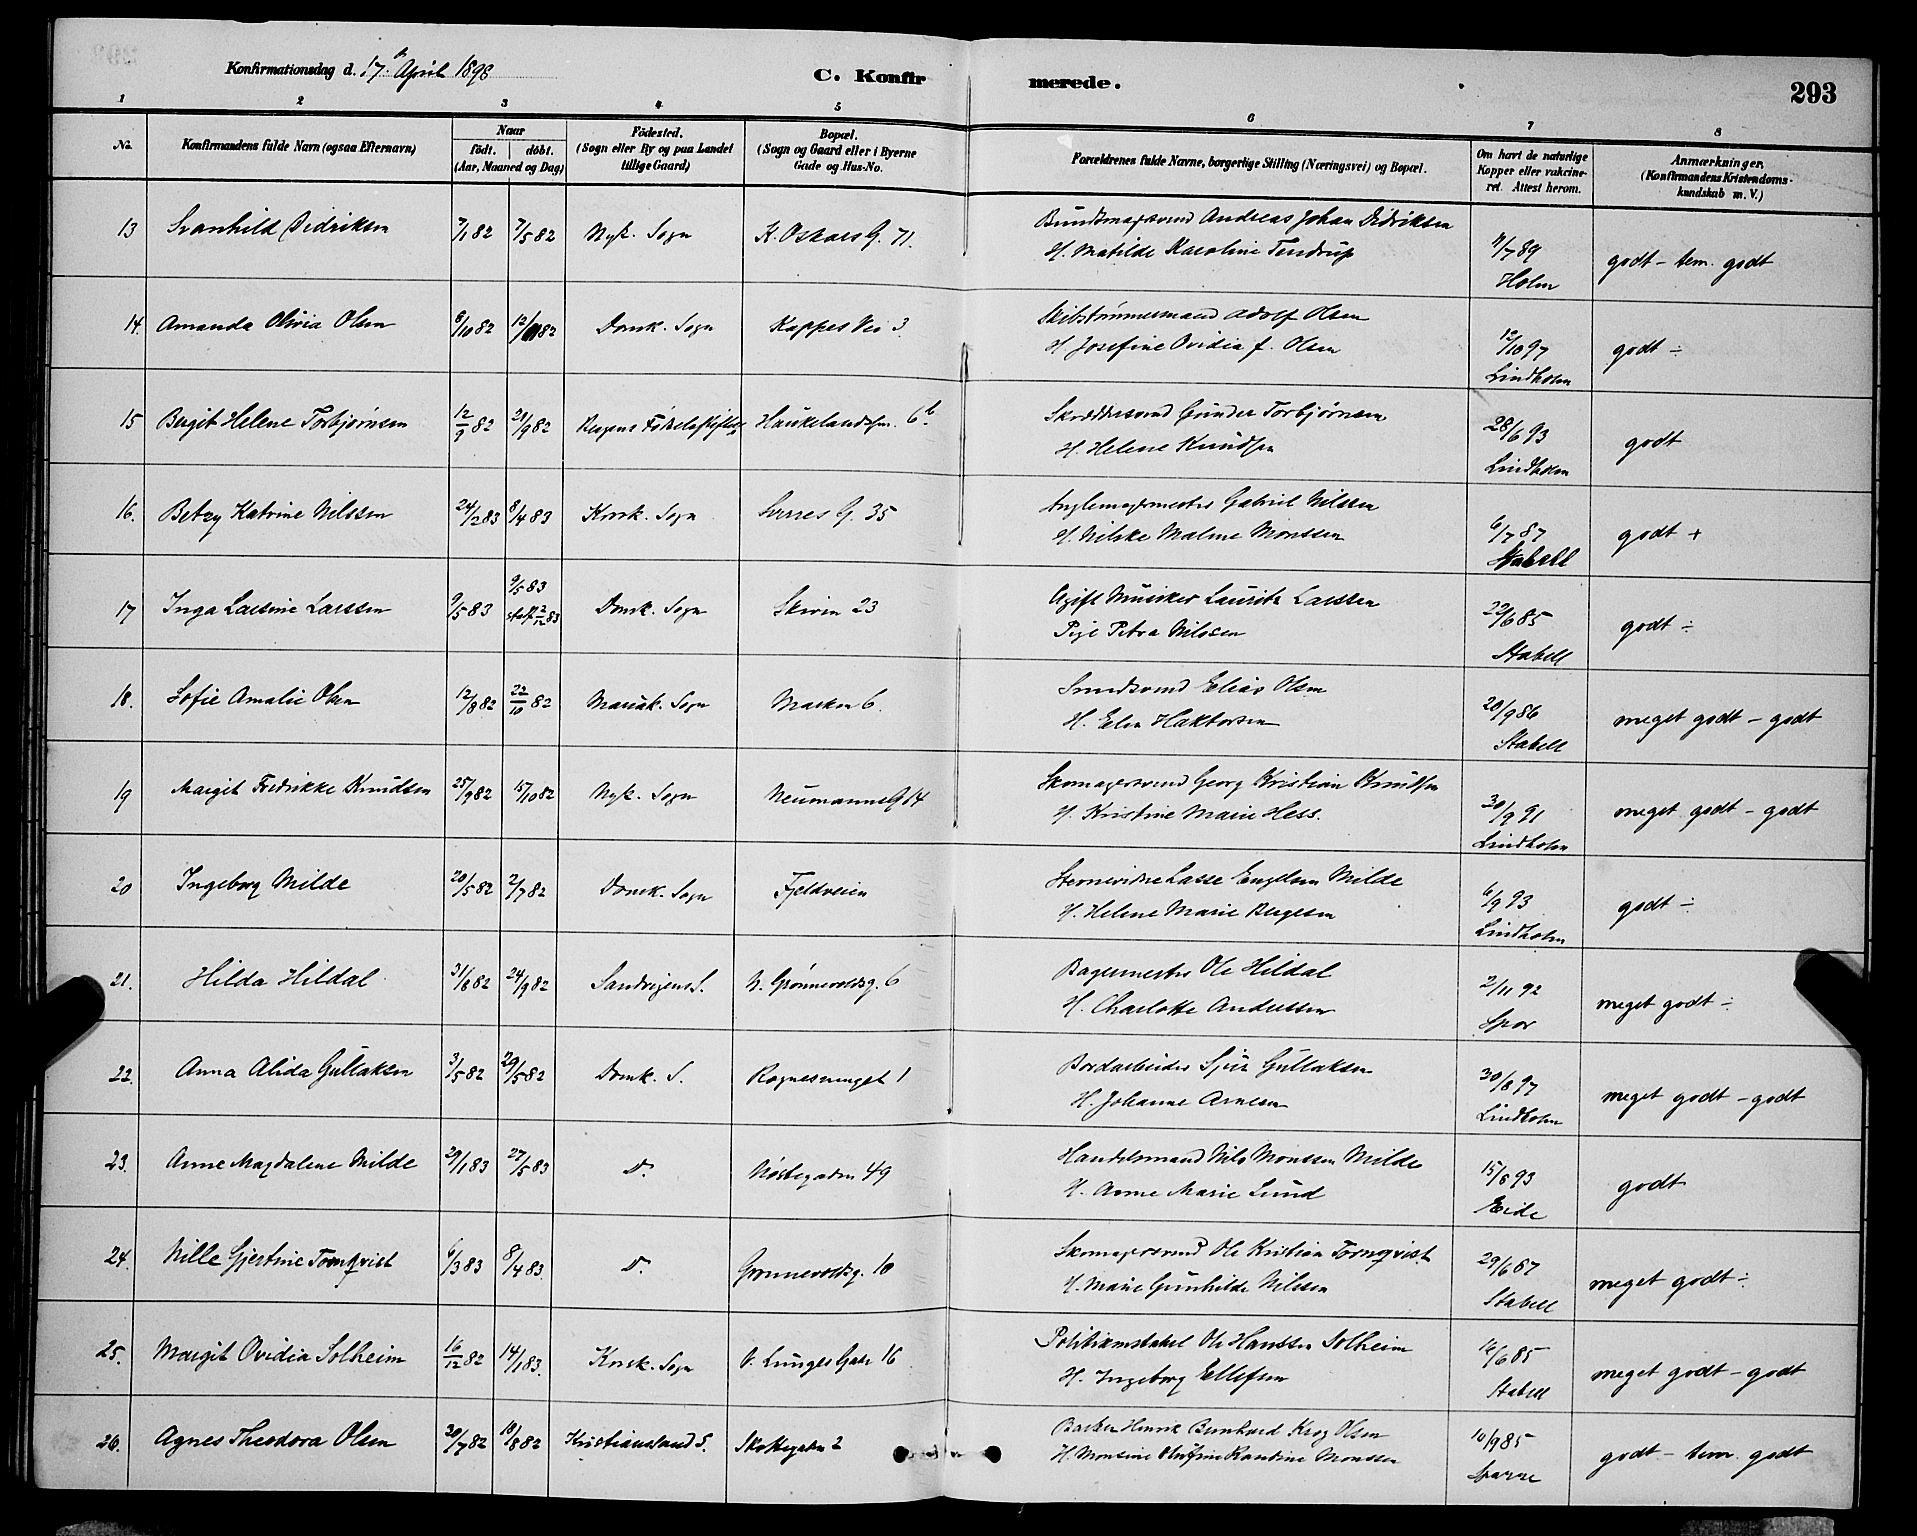 Konfirmationsdag d. 17 April 1898
C. Konfir merede.
293
1 2 3 4 5 6 7 8
No. Konfirmandens fulde Navn (ogsaa Efternavn) Naar födt. döbt. (Aar, Maaned og Dag) Födested. (Sogn eller By og paa Landet tillige Gaard) Bopæl. (Sogn og Gaard eller i Byerne Gade og Hus-No. Forældrenes fulde Navne, borgerlige Stilling (Næringsvei) og Bopæl. Om havt de naturlige Kopper eller vakcineret. Attest herom. Anmærkninger. (Konfirmandens Kristendomskundskab m. V.)
13 Svanhild Didriksen 7/1 82 7/5 82 Nyk. Sogn K. Oskars G. 71. Buntmagersvend Andreas Johan Didriksen 11/7 89
H. Matilde Karoline Tendrup Holm godt - tem. godt
14. Amanda Olivia Olsen 8/10 82 12/11 82 Domk. Sogn Kappes Vei 3. Skibstømmermand Adolf Olsen
H. Josefine Ovidia f. Olsen 12/10 97 Lindholm godt ÷
15 Bergit Helene Torbjørnsen 12/9 82 21/9 82 Bergens Fødselsstiftelse Haukelandsvn. 6b. Skræddersvend Gunder Torbjørnsen
H. Helene Knudsen 28/6 93 Lindholm godt
16. Betzy Katrine Nilssen 24/2 83 8/4 83 Korsk. Sogn Sverres G. 35 Gabriel Nilssen
H. Nilske Malene Monssen 6/7 87 Stabell godt +
17 Inga Larsine Larssen 9/5 83 9/5 83 stadf. 2/12 83 Domk. Sogn Skiven 23 Ugift Musiker Lauritz Larssen
Pige Petra Nilssen 22/6 85 Stabell godt ÷
18. Sofie Amalie Olsen 12/8 82 22/10 82 Mariak. Sogn Marken 6. Smedsvend Elias Olsen
H. Elen Haktorsen 20/9 86 Stabell meget godt - godt
19 Margit Fredrikke Knudsen 25/9 82 15/10 82 Nyk. Sogn Neumanns G 14 Skomagersvend Georg Kristian Knudsen
H. Kristine Marie Hess. 30/9 91 Lindholm meget godt - godt
20 Ingeborg Milde 20/5 82 2/7 82 Domk. Sogn Fjeldveien Lasse Engelsen Milde
H. Helene Marie Bergesen 6/9 93 Lindholm godt ÷
21. Hilda Hildal 31/8 82 24/9 82 Sandvigens S. N. Grønnevoldsg. 6 Bagermester Ole Hildal
H. Charlotte Anderssen 2/11 92 Spor meget godt ÷
22. Anna Alida Gullaksen 3/5 82 29/5 82 Domk. S. Rognesmuget 1 Bordarbeider Sjur Gullaksen
H. Johanne Arnesen 30/8 97 Lindholm meget godt - godt
23. Anne Magdalene Milde 29/1 83 27/5 83 D. Nøstegaden 49 Handelsmand Nils Monssen Milde
H. Anne Marie Lund 15/8 93 Eide godt
24. Nille Gjertine Tornqvist 6/3 83 8/4 83. D. Grønnevoldsg. 10 Skomagersvend Ole Kristian Tornqvist
H. Marie Gunhilde Nilssen 29/6 87 Stabell meget godt ÷
25. Margit Ovidia Solheim 16/12 82 14/1 83. Korsk. Sogn O. Lunges Gade 16 Politikonstabel Ole Hanssen Solheim
H. Ingeborg Ellefsen 16/6 85 Stabell meget godt - godt
26. Agnes Theodora Olsen 30/7 82 18/8 82 Kristianssand S. Skottegaden 2 Henrik Bernhard Krog Olsen
H. Monsine Olufine Randine Monssen 10/9 85 Sparre godt - tem. godt